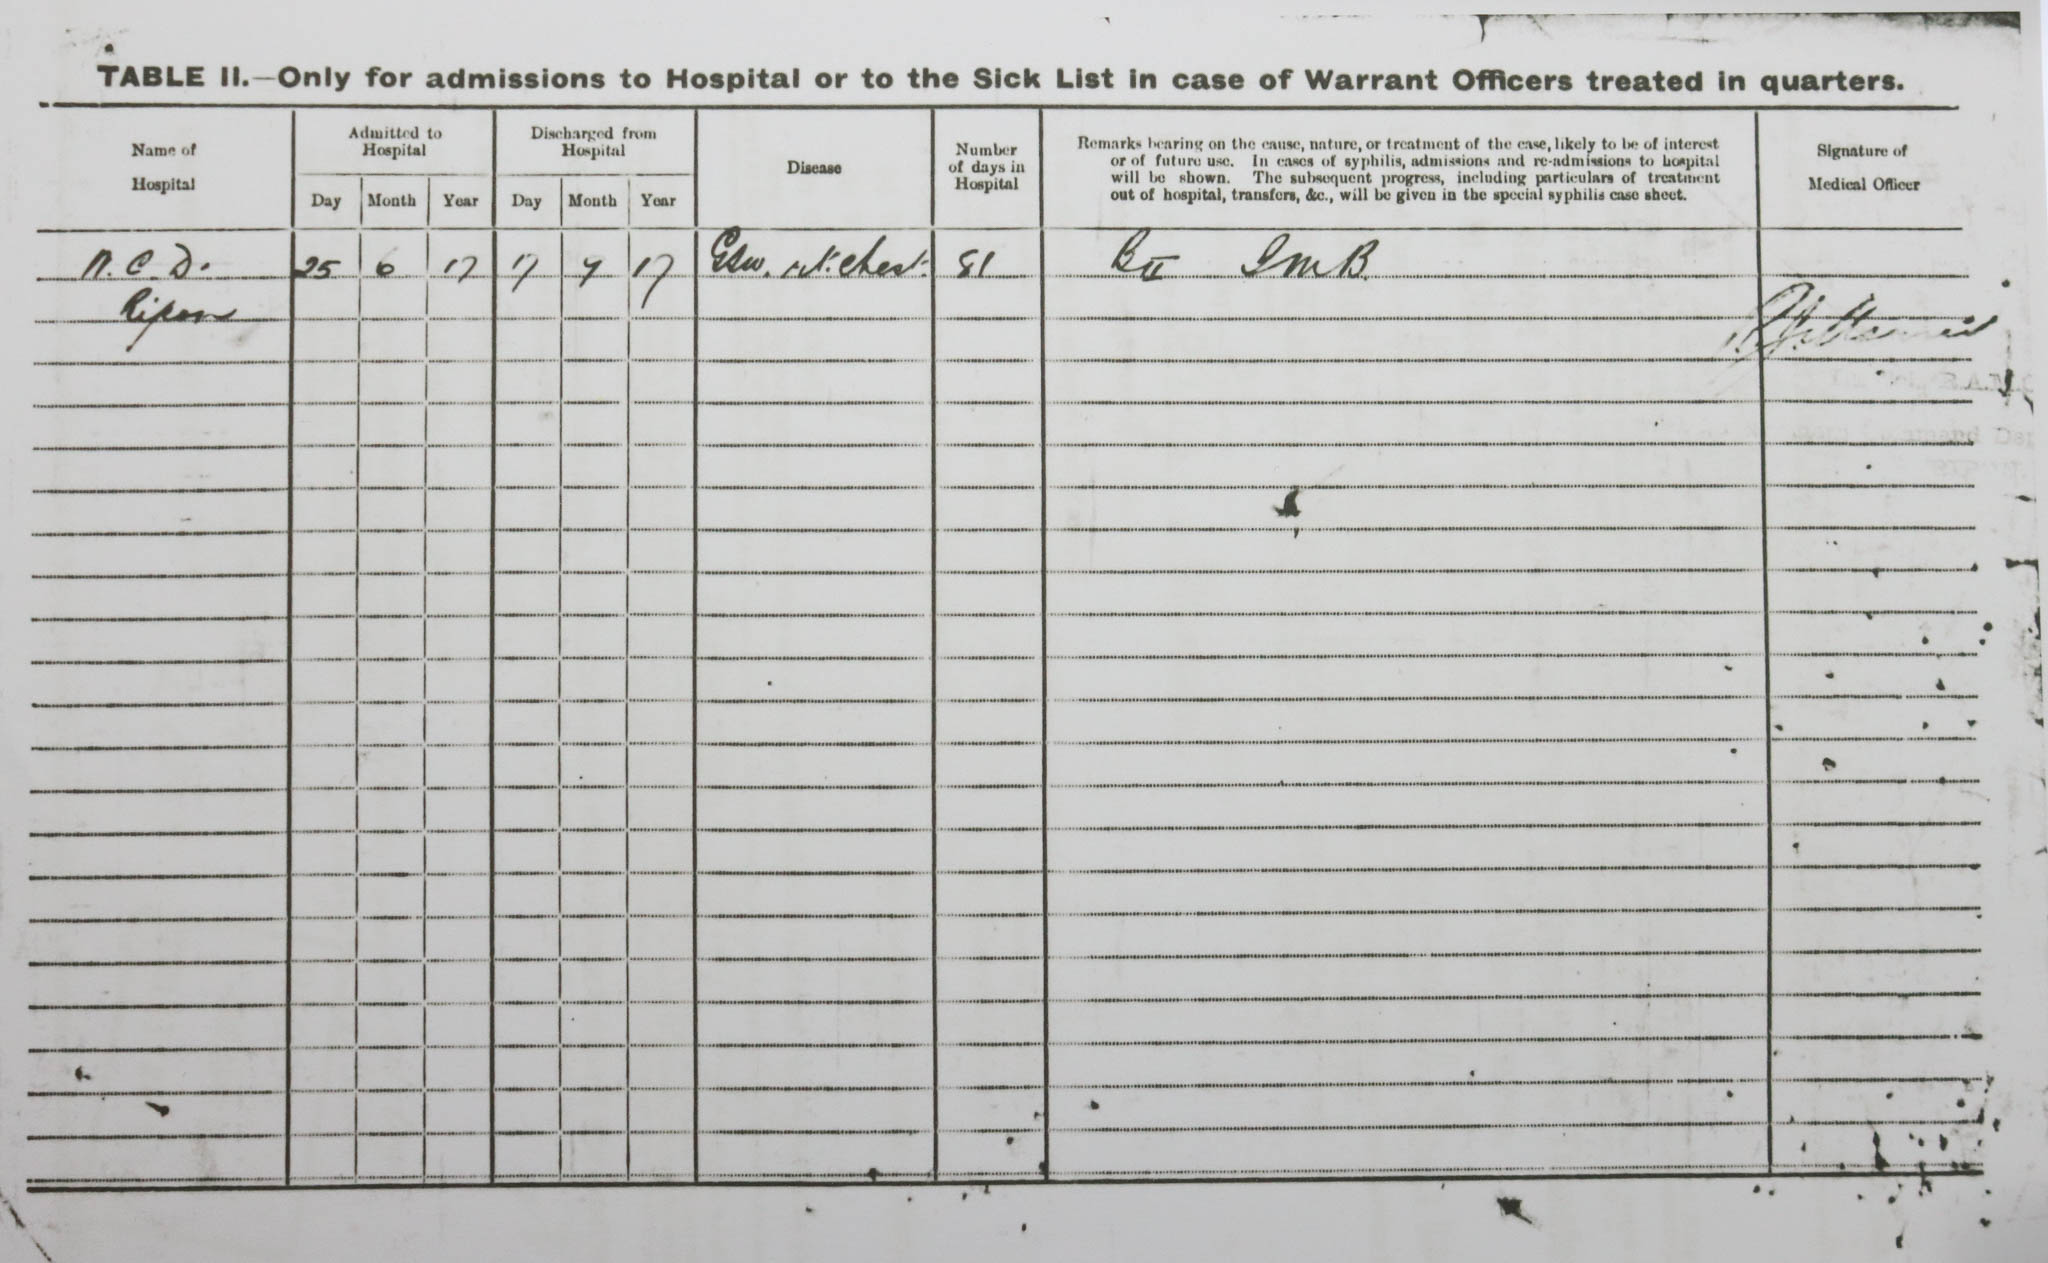 TABLE II.—Only for admissions to Hospital or to the Sick List in case of Warrant Officers treated in quarters.
Name of
Hospital
Admitted to
Hospital
Day Month Year
Discharged from
Hospital
Day Month Year
Disease
Number
of days in
Hospital
Remarks bearing on the cause, nature, or treatment of the case, likely to be of interest
or of future use. In cases of syphilis, admissions and re-admissions to hospital
will be shown. The subsequent progress, including particulars of treatment
out of hospital, transfers, &c., will be given in the special syphilis case sheet.
Signature of
Medical Officer
N. C. D. 25 6 17 17 9 17 GSW. rt. chest. 81 B II I M B.
Ripon